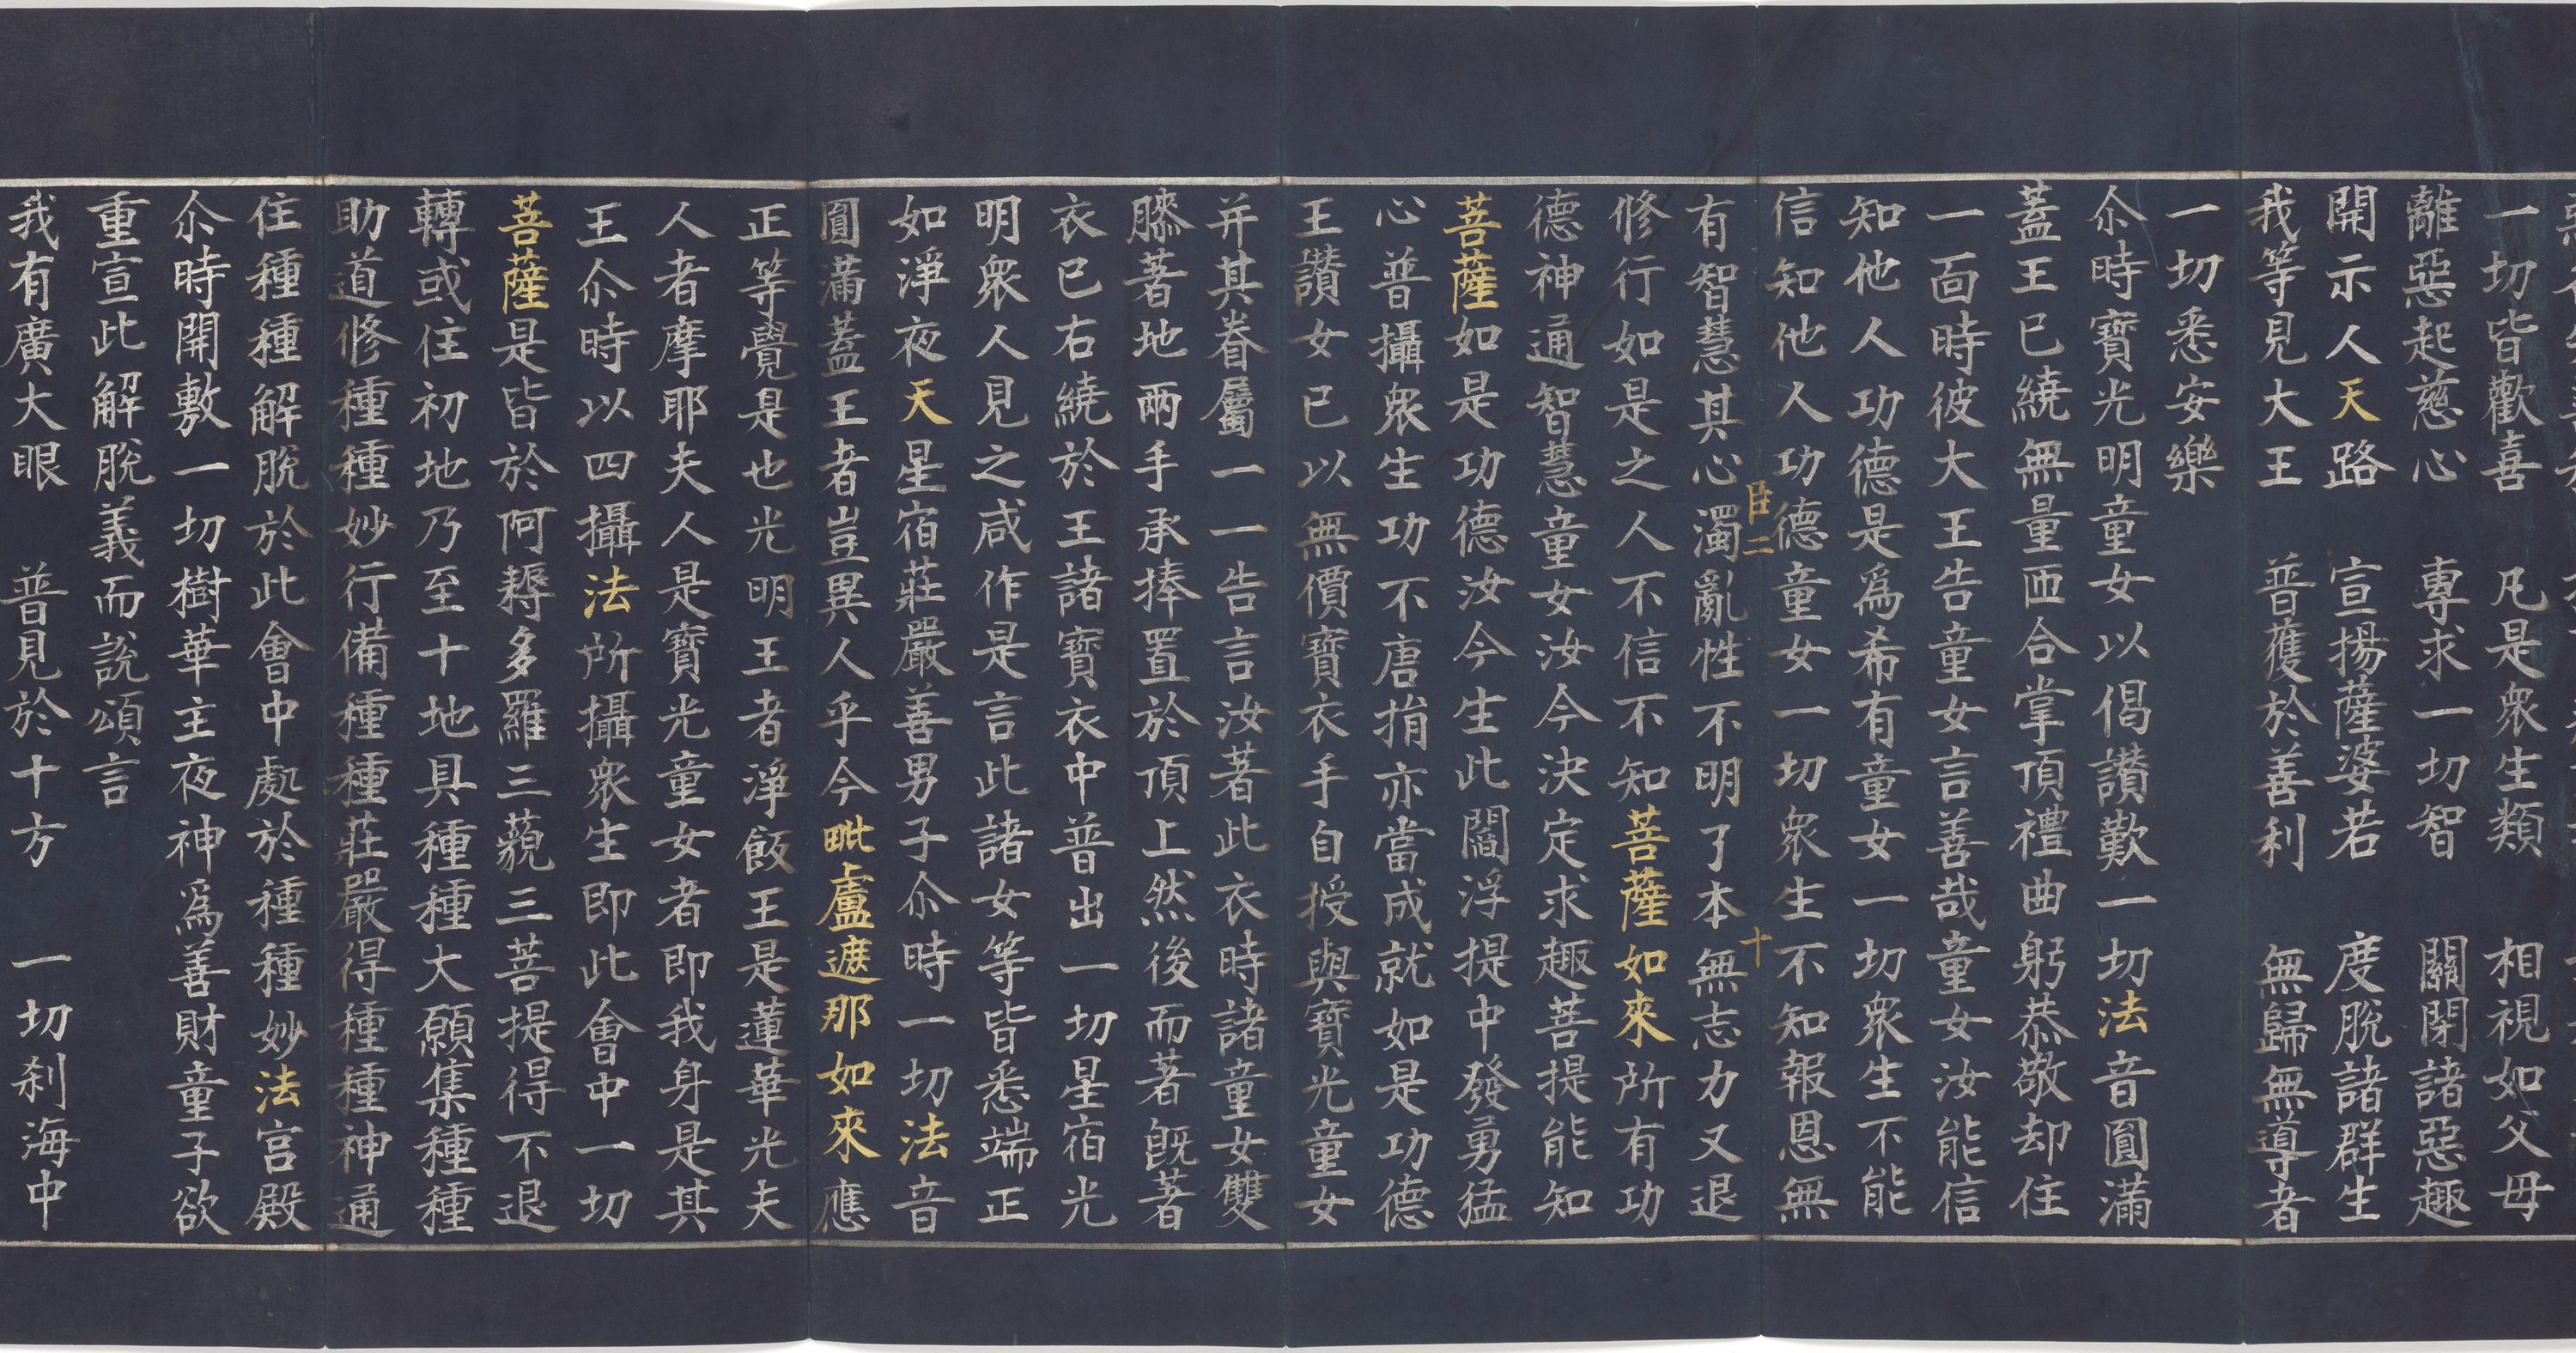 一切皆歡喜　凡是衆生類　相視如父母
離惡起慈心　專求一切智　關閉諸惡趣
開示人天路　宣揚薩婆若　度脫諸群生
我等見大王　普獲於善利　無歸無導者
一切悉安樂
尒時寶光明童女以偈讚歎一切法音圓滿
蓋王已繞無量匝合掌頂禮曲躬恭敬却住
一面時彼大王告童女言善哉童女汝能信
知他人功德是爲希有童女一切衆生不能
信知他人功德童女一切衆生不知報恩無
臣二　十
有智慧其心濁亂性不明了本無志力又退
修行如是之人不信不知菩薩如來所有功
德神通智慧童女汝今決定求趣菩提能知
菩薩如是功德汝今生此閻浮提中發勇猛
心普攝衆生功不唐捐亦當成就如是功德
王讚女已以無價寶衣手自授與寶光童女
并其眷屬一一告言汝著此衣時諸童女雙
膝著地兩手承捧置於頂上然後而著既著
衣已右繞於王諸寶衣中普出一切星宿光
明衆人見之咸作是言此諸女等皆悉端正
如淨夜天星宿莊嚴善男子尒時一切法音
圓滿蓋王者豈異人乎今毗盧遮那如來應
正等覺是也光明王者淨飯王是蓮華光夫
人者摩耶夫人是寶光童女者即我身是其
王尒時以四攝法所攝衆生即此會中一切
菩薩是皆於阿耨多羅三藐三菩提得不退
轉或住初地乃至十地具種種大願集種種
助道修種種妙行備種種莊嚴得種種神通
住種種解脫於此會中處於種種妙法宮殿
尒時開敷一切樹華主夜神爲善財童子欲
重宣此解脫義而說頌言
我有廣大眼　普見於十方　一切刹海中